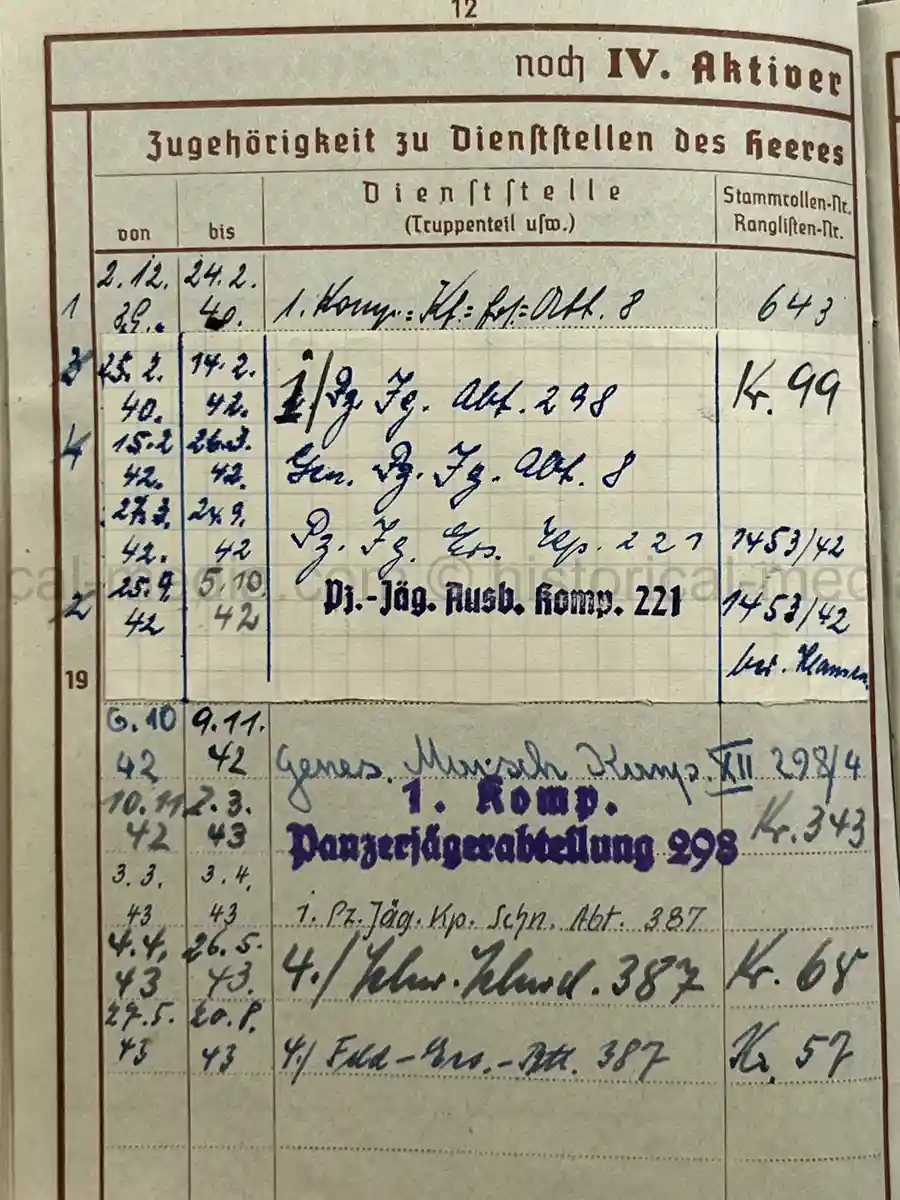 12
noch IV. Aktiver
Zugehörigkeit zu Dienststellen des Heeres
von bis Dienststelle (Truppenteil usw.) Stammrollen-Nr. Ranglisten-Nr.
2.12. 24.2.
1 39. 40. 1. Komp.= Kf.= Ers.= Abt. 8 643
3 25.2. 14.2.
40. 42. 1/Pz. Jg. Abt. 298 Kr. 99
4 15.2 26.3.
42. 42. Gen. Pz. Jg. Abt. 8
27.3. 24.9.
42. 42 Pz. Jg. Ers. Kp. 221 1453/42
25.9. 5.10.
2 42 42 Pz.-Jäg. Ausb. Komp. 221 1453/42
19
6.10 9.11.
42 42 Genes. Marsch Komp. XII 298/4
10.11. 2.3. 1. Komp.
42 43 Panzerjägerabteilung 298 Kr. 343
3.3. 3.4.
43 43 1. Pz. Jäg. Kp. Schn. Abt. 387
4.4. 26.5.
43 43. 4./ 387 Kr. 68
27.5. 20.8.
43 43 4./ Feld-Ers.-Btl. 387 Kr. 57
© historical-med